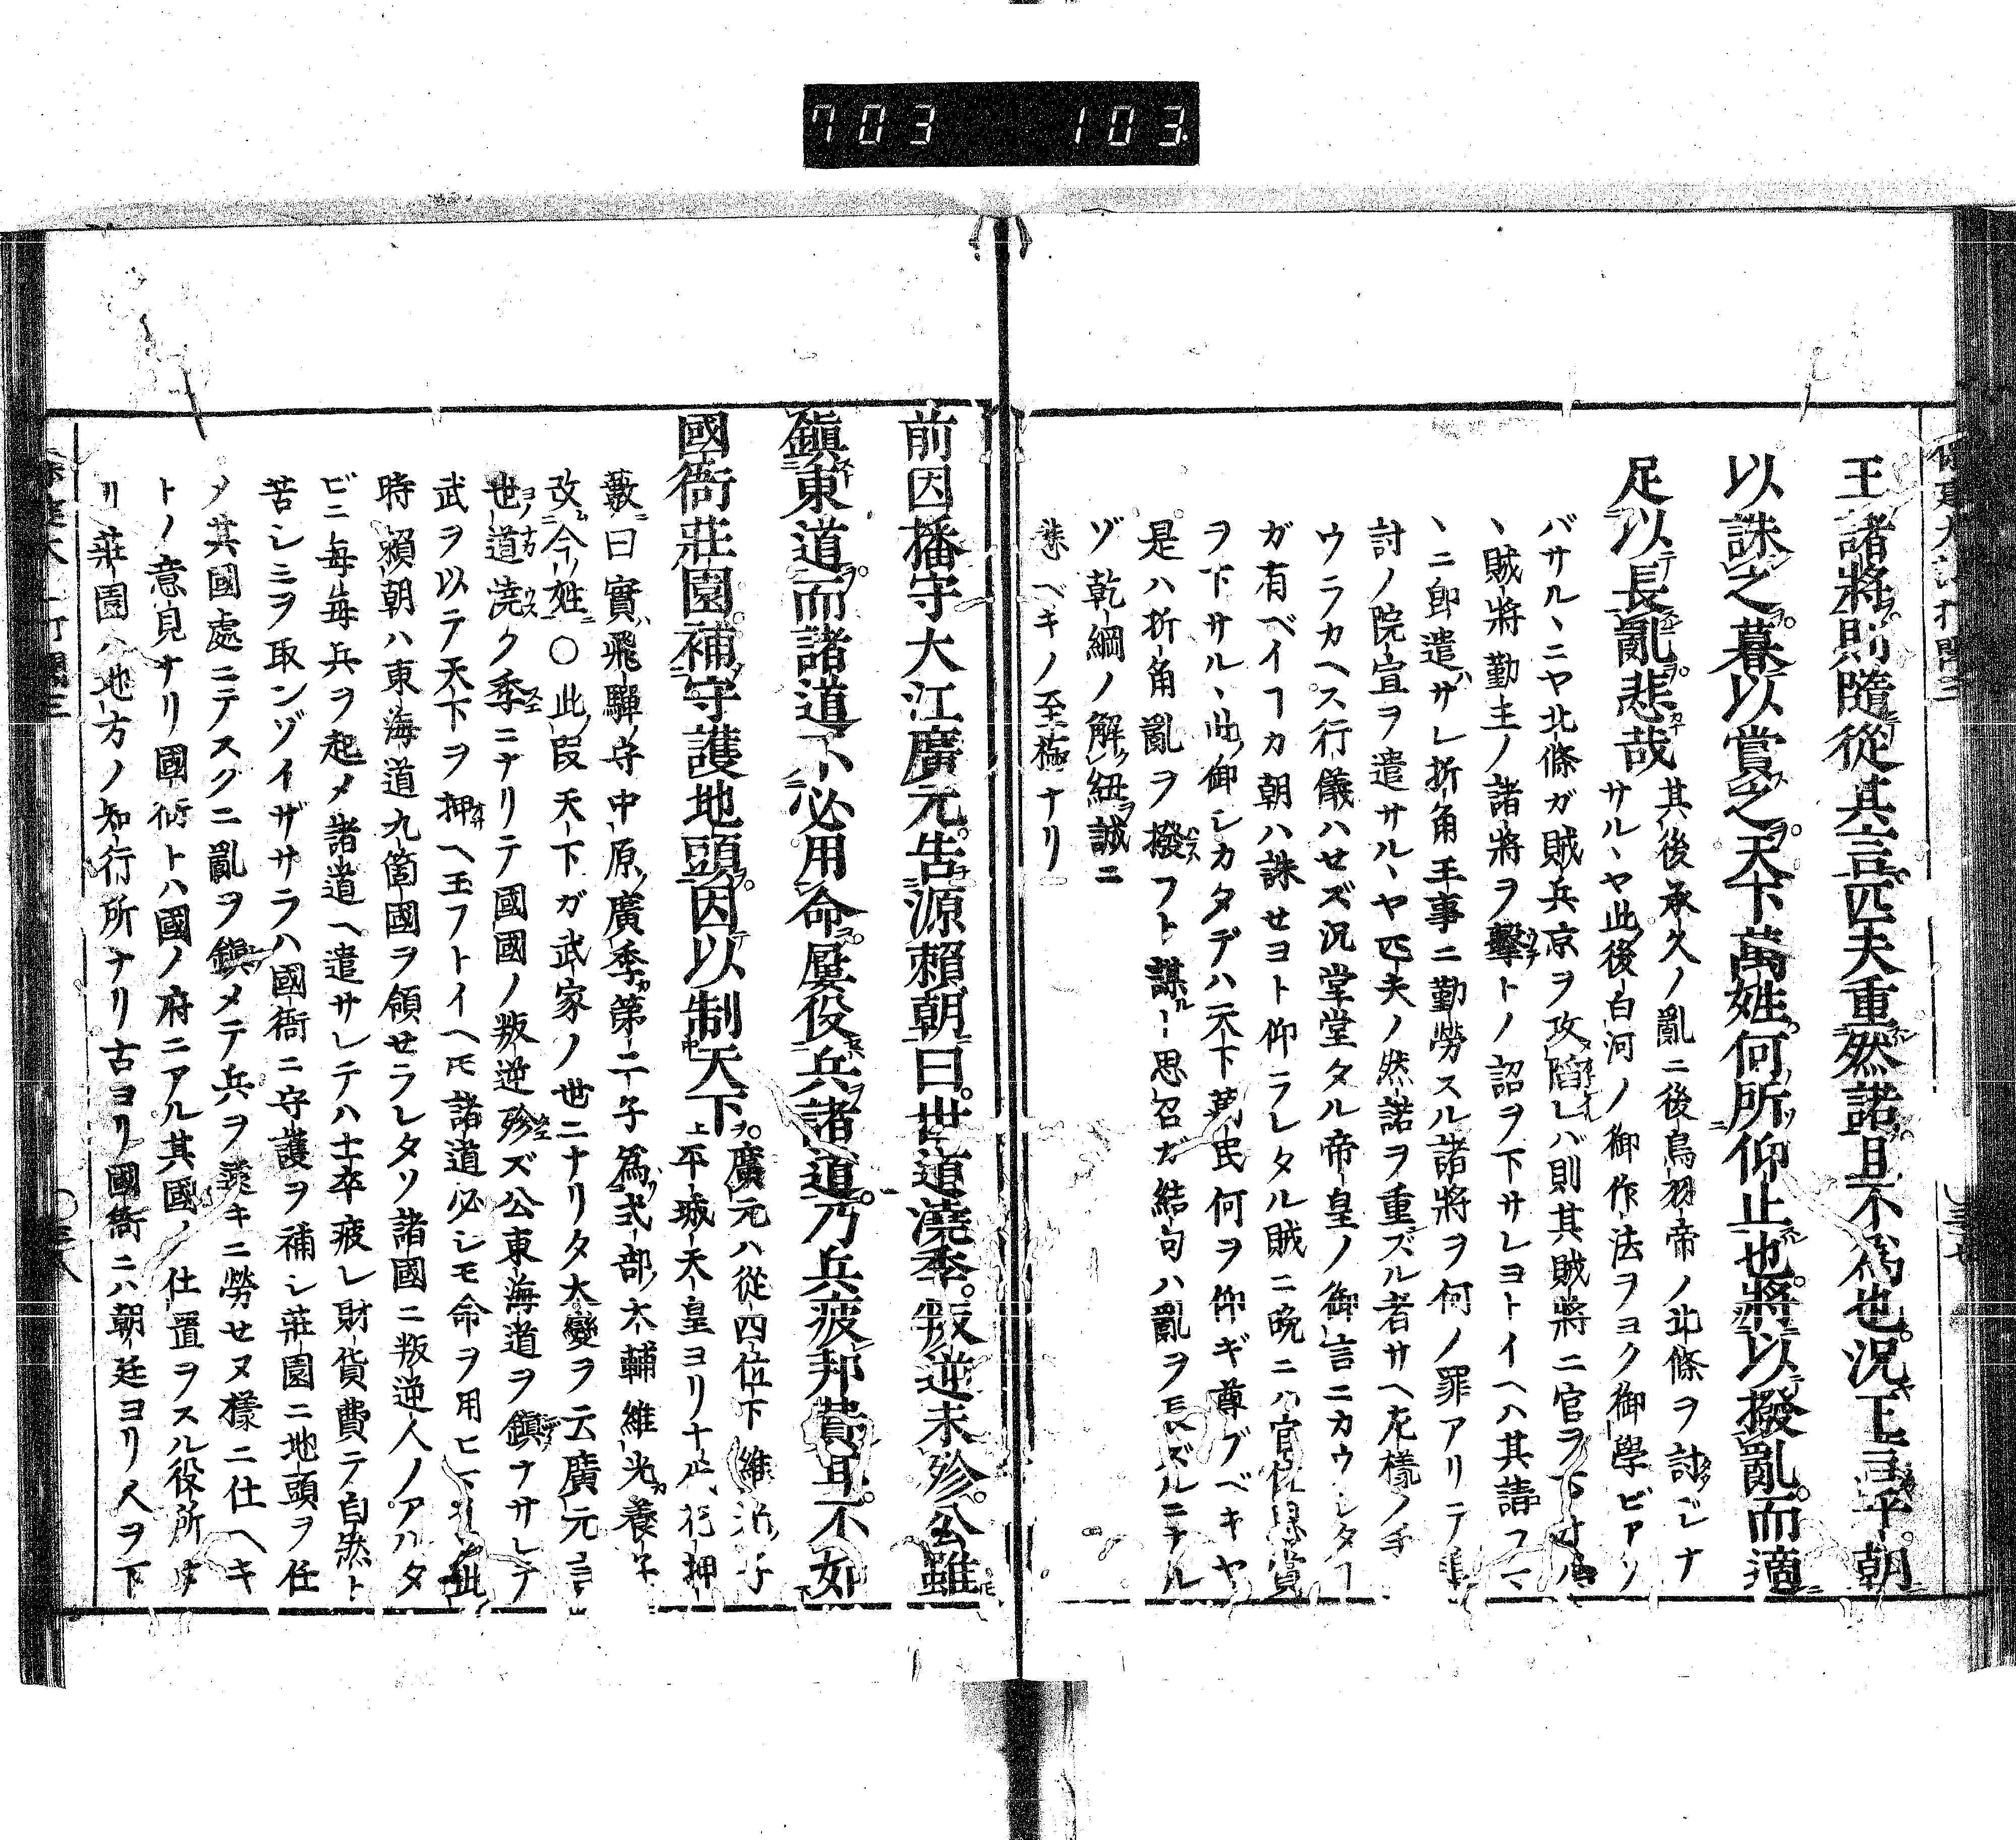 703 103
王諸將則隨從其言匹夫重然諾且不爲也況王言乎朝
以誅之暮以賞之天下萬姓何所仰止也將以撥亂而適
足以長亂悲哉
其後承久ノ亂ニ後鳥羽帝ノ北條ヲ討ジナ
サル丶ヤ此後白河ノ御作法ヲヨク御學ビアソ
バサル丶ニヤ北條ガ賊兵京ヲ攻陷レバ則其賊將ニ官ヲ下サル
丶賊將勤主ノ諸將ヲ擊トノ詔ヲ下サレヨトイヘハ其請フマ
丶ニ卽遣サレ折角王事ニ勤勞スル諸將ヲ何ノ罪アリテ
討ノ院宣ヲ遣サル丶ヤ匹夫ノ然諾ヲ重ズル者サヘ左樣ノ手
ウラカヘス行儀ハセズ況堂堂タル帝皇ノ御言ニカウシタヿ
ガ有ベイヿカ朝ハ誅セヨト仰ラレタル賊ニ晩ニハ官位恩賞
ヲ下サル丶此御シカタデハ天下萬民何ヲ仰ギ尊ブベキヤ
是ハ折角亂ヲ撥フト謀ルー思召ガ結句ハ亂ヲ長ズルニナル
ゾ乾綱ノ解紐誠ニ
歎ベキノ至極ナリ
前因播守大江廣元告源賴朝曰世道澆季叛逆未殄公雖
鎭東道而諸道不必用命屢役兵諸道乃兵疲邦費且不如
國衙莊園補守護地頭因以制天下
廣元ハ從四位下維光ノ子
平城天皇ヨリ十代
藪曰實飛驒守中原廣季第二子爲式部大輔維光養子
改今姓○此段天下ガ武家ノ世ニナリタ大變ヲ云廣元言
世道澆ク季ニナリテ國國ノ叛逆殄ズ公東海道ヲ鎭ナサレテ
武ヲ以テ天下ヲ押ヘ玉フトイヘ𪜈諸道必シモ命ヲ用ヒ下
時賴朝ハ東海道九箇國ヲ領セラレタリ諸國ニ叛逆人ノアハタ
ビニ每每兵ヲ起メ諸道ヘ遣サレテハ士卒疲レ財貨費テ自然ト
苦シニヲ取ンゾイザサラハ國衙ニ守護ヲ補シ莊園ニ地頭ヲ任
メ其國處ニテスグニ亂ヲ鎭メテ兵ヲ遠キニ勞セヌ樣ニ仕ヘキ
トノ意見ナリ國衙トハ國ノ府ニアル其國ノ仕置ヲスル役所ナ
リ莊園ハ地方ノ知行所ナリ古ヨリ國衙ニハ朝廷ヨリ人ヲ下